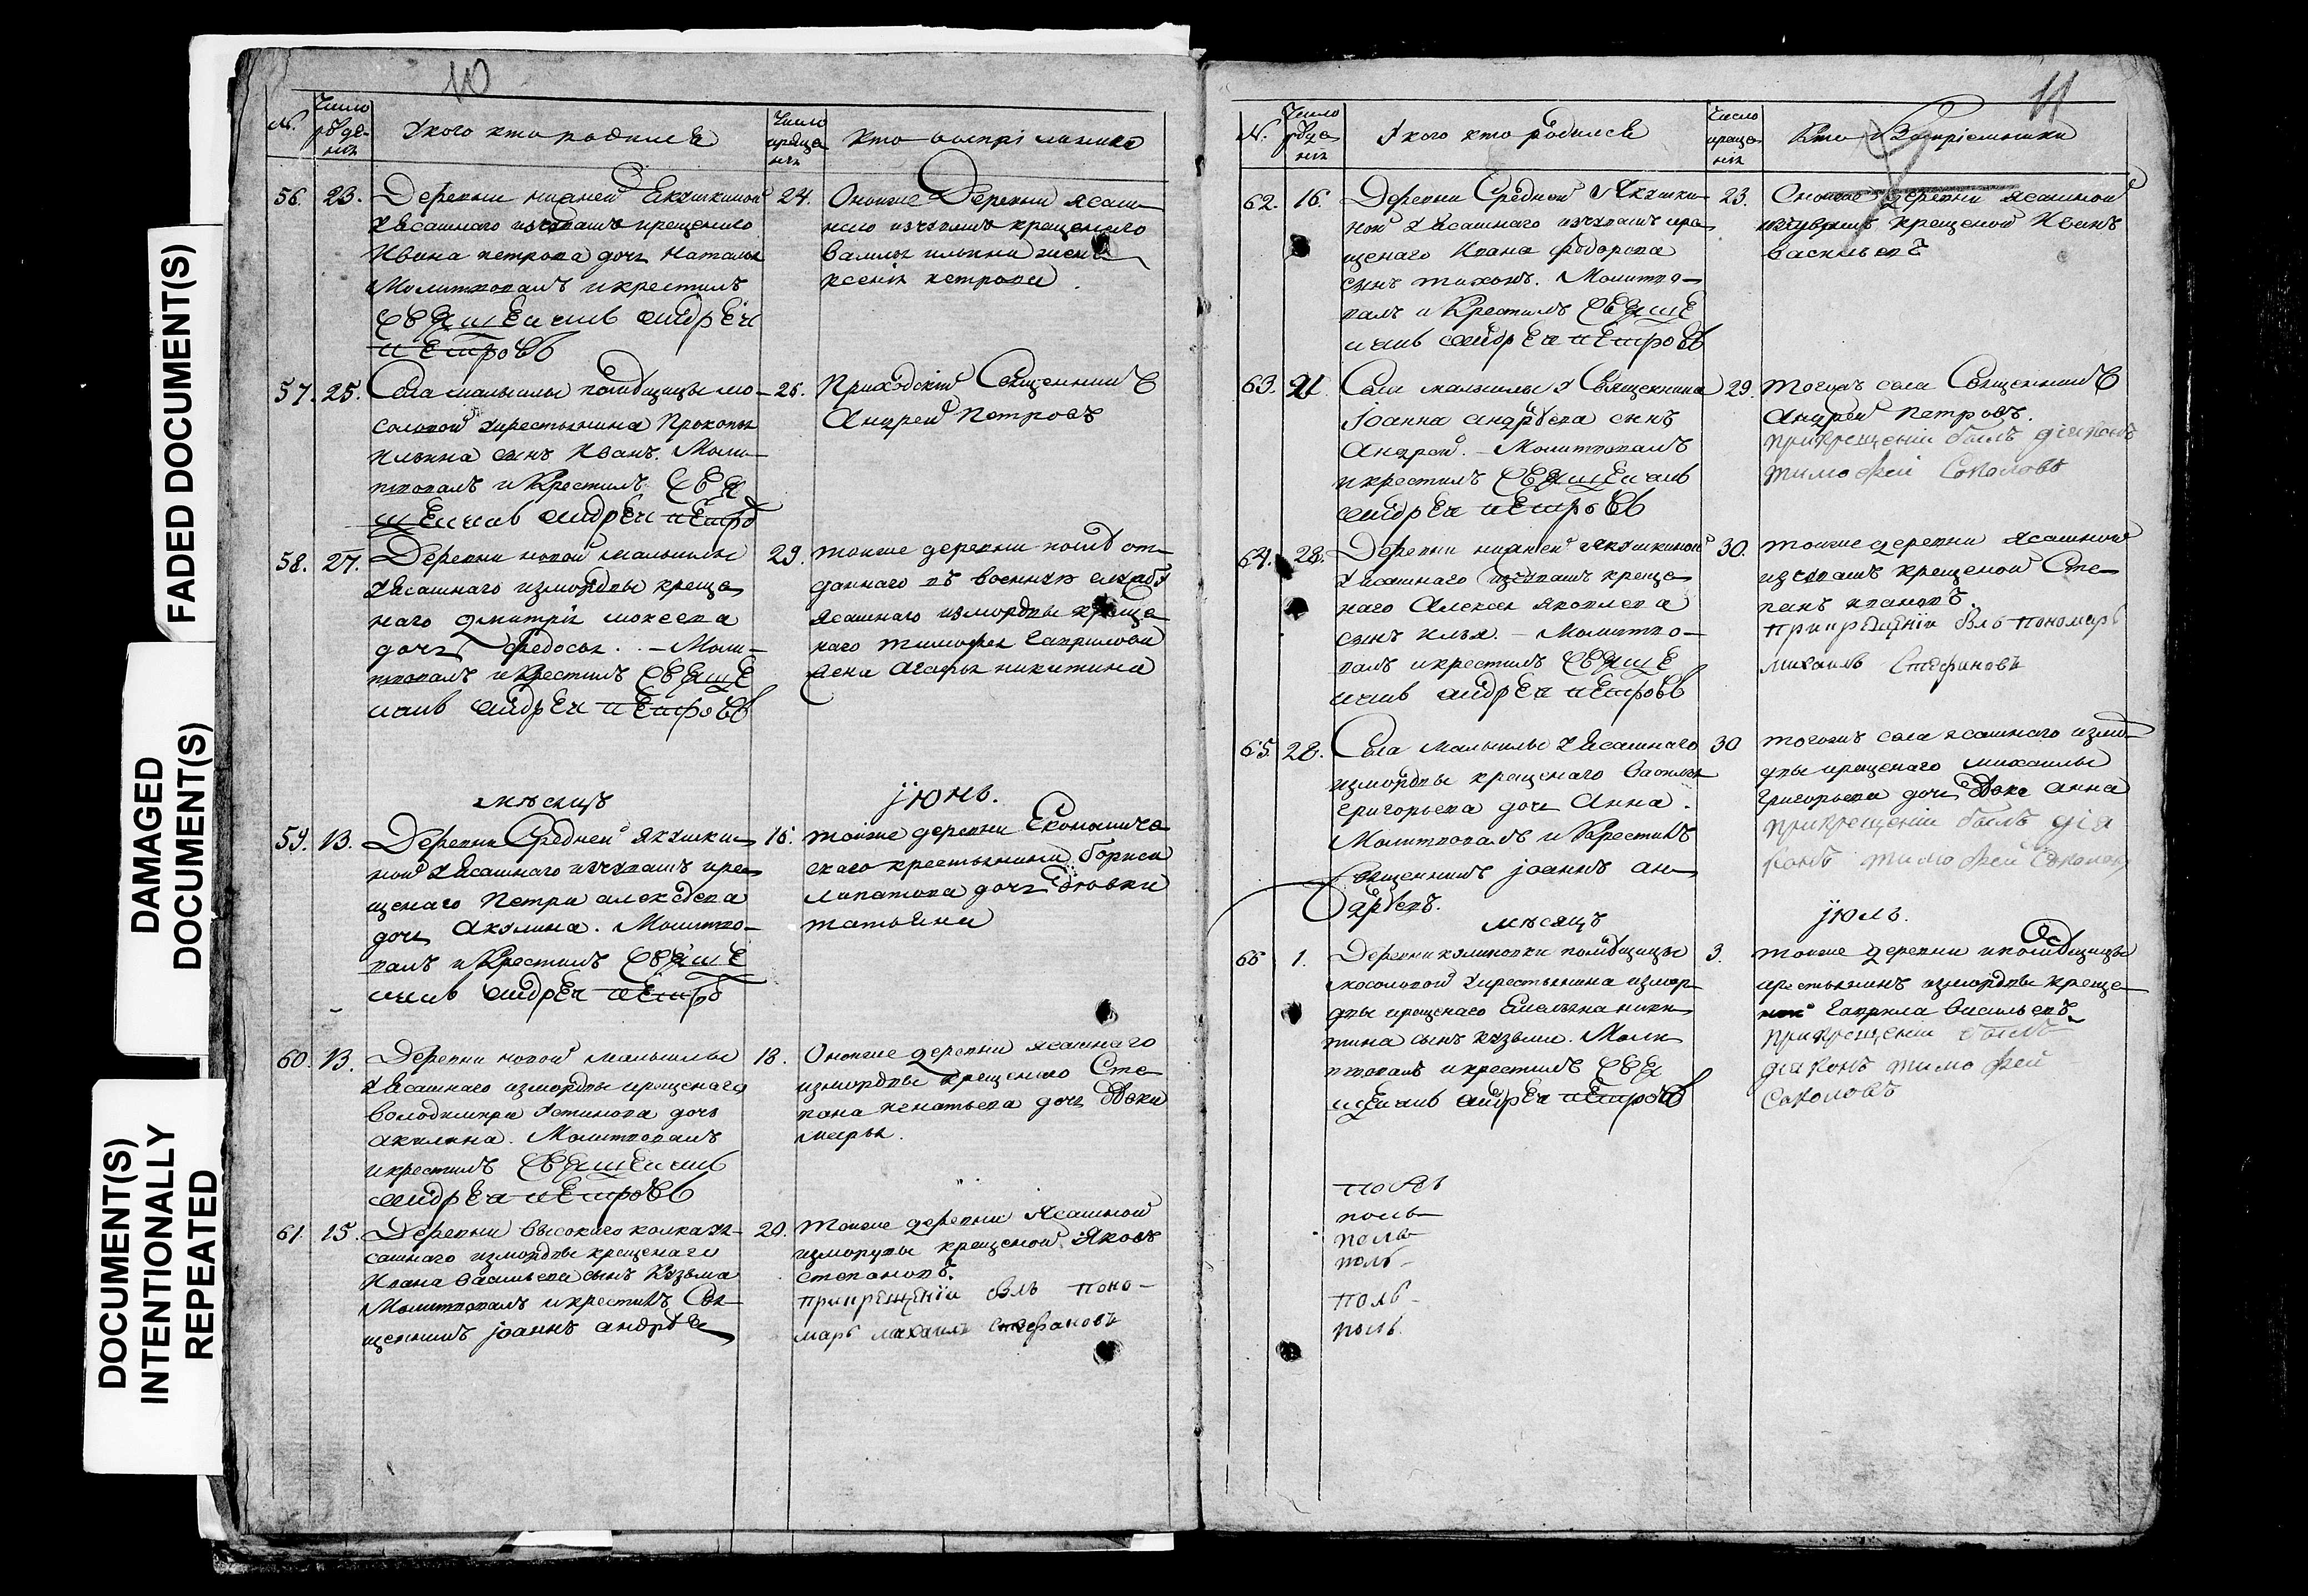 FADED DOCUMENT(S)
DAMAGED
DOCUMENT(S)
DOCUMENT(S)
INTENTIONALLY
REPEATED
10
№.
Число
рожде-
нія
У кого кто родился
Число
креще
нія
Кто воспріемники
56. 23. Деревни нижней Якушкиной
У ясашнаго изчувашъ крещенаго
Ивана петрова дочь Наталья
Молитвовалъ и крестилъ
священникъ андрей
петровъ
24. Оноиже Деревни ясаш
наго изчувашъ крещенаго
василья ильина жена
ксенія петрова
57. 25. Села малыклы помѣщицы мо-
солової у крестьянина Прокопья
Ильина сынъ Иванъ. Моли-
твовалъ и Крестилъ свя
щенникъ андрей петро
26. Приходскій Священникъ
Андрей Петровъ
58. 27. Деревни новой малыклы
У ясашнаго измордвы креще
наго дмитрія мокеева
дочь федосья. - Моли-
твовалъ и Крестилъ свяще
нникъ андрей петровъ
29. тоиже деревни послѣ от
даннаго въ военную службу
ясашнаго измордвы креще
наго тимофея гаврилова
жена Агафья никитина
мѣсяцъ іюнь.
59. 13. Деревни Средней якушки
ной У ясашнаго изчувашъ кре
щенаго Петра алексѣева
дочь Акулина. Молитво-
валъ и Крестилъ свяще
нникъ андрей петро
16. тоиже деревни Економиче
скаго крестьянина бориса
липатова дочь Дѣвка
татьяна
60. 13. Деревни новой малыклы
У ясашнаго измордвы крещенаго
володимира устинова дочь
акулина. Молитвовалъ
и крестилъ священникъ
андрей петровъ
18. Оноиже деревни ясашнаго
измордвы крещенаго Сте
пана игнатьева дочь Дѣвка
марья.
61. 15. Деревни высокаго колка У я-
сашнаго измордвы крещенаго
Ивана васильева сынъ Кузьма
Молитвовалъ и крестилъ Свя-
щенникъ іоаннъ андрѣе
20. тоиже деревни Ясашной
измордвы крещеной Яковъ
степановъ.
прикрещеніи былъ поно-
марь михаилъ стефановъ
11
№.
Число
рожде
нія
У кого кто родился
Число
креще
нія
Кто Воспріемники
62. 16. Деревни Средней Якушки
ной У ясашнаго изчувашъ кре
щенаго Ивана федорова
сынъ тихонъ. Молитво-
валъ и Крестилъ свяще
нникъ андрей петровъ
23. Оноиже деревни ясашной
изчувашъ крещеной Иванъ
васильевъ
63. 21. Села малыклы У Священника
іоанна андрѣева сынъ
Андрей. - Молитвовалъ
и крестилъ священникъ
андрей петровъ
29. тогожъ села Священникъ
Андрей Петровъ.
прикрещеніи былъ діаконъ
тимофей Соколовъ
64. 28. Деревни нижней якушкиной
У ясашнаго изчувашъ креще
наго Алексея яковлева
сынъ илья. - Молитво-
валъ и крестилъ свяще
нникъ андрей петровъ
30. тоиже деревни ясашной
изчувашъ крещеной Сте
панъ ивановъ.
прикрещеніи былъ пономарь
михаилъ Стефановъ
65. 28. Села Малыклы У ясашнаго
измордвы крещенаго василья
григорьева дочь Анна.
Молитвовалъ и Крестилъ
Священникъ іоаннъ ан
дрѣевъ.
30 тогожъ села ясашнаго измо
рдвы крещенаго михаилы
григорьева дочь Дѣвка анна
прикрещеніи былъ діа
конъ тимофей Соколовъ
мѣсяцъ іюль.
66 1. Деревни куликовки помѣщицы
мосоловой У крестьянина измор
двы крещенаго Емельяна ники
тина сынъ кузьма. Моли
твовалъ и крестилъ свя
щенникъ андрей петровъ
3. тоиже деревни и помѣщицы
крестьянинъ измордвы креще
ной гаврила васильевъ
прикрещеніи былъ
діаконъ тимофей
Соколовъ